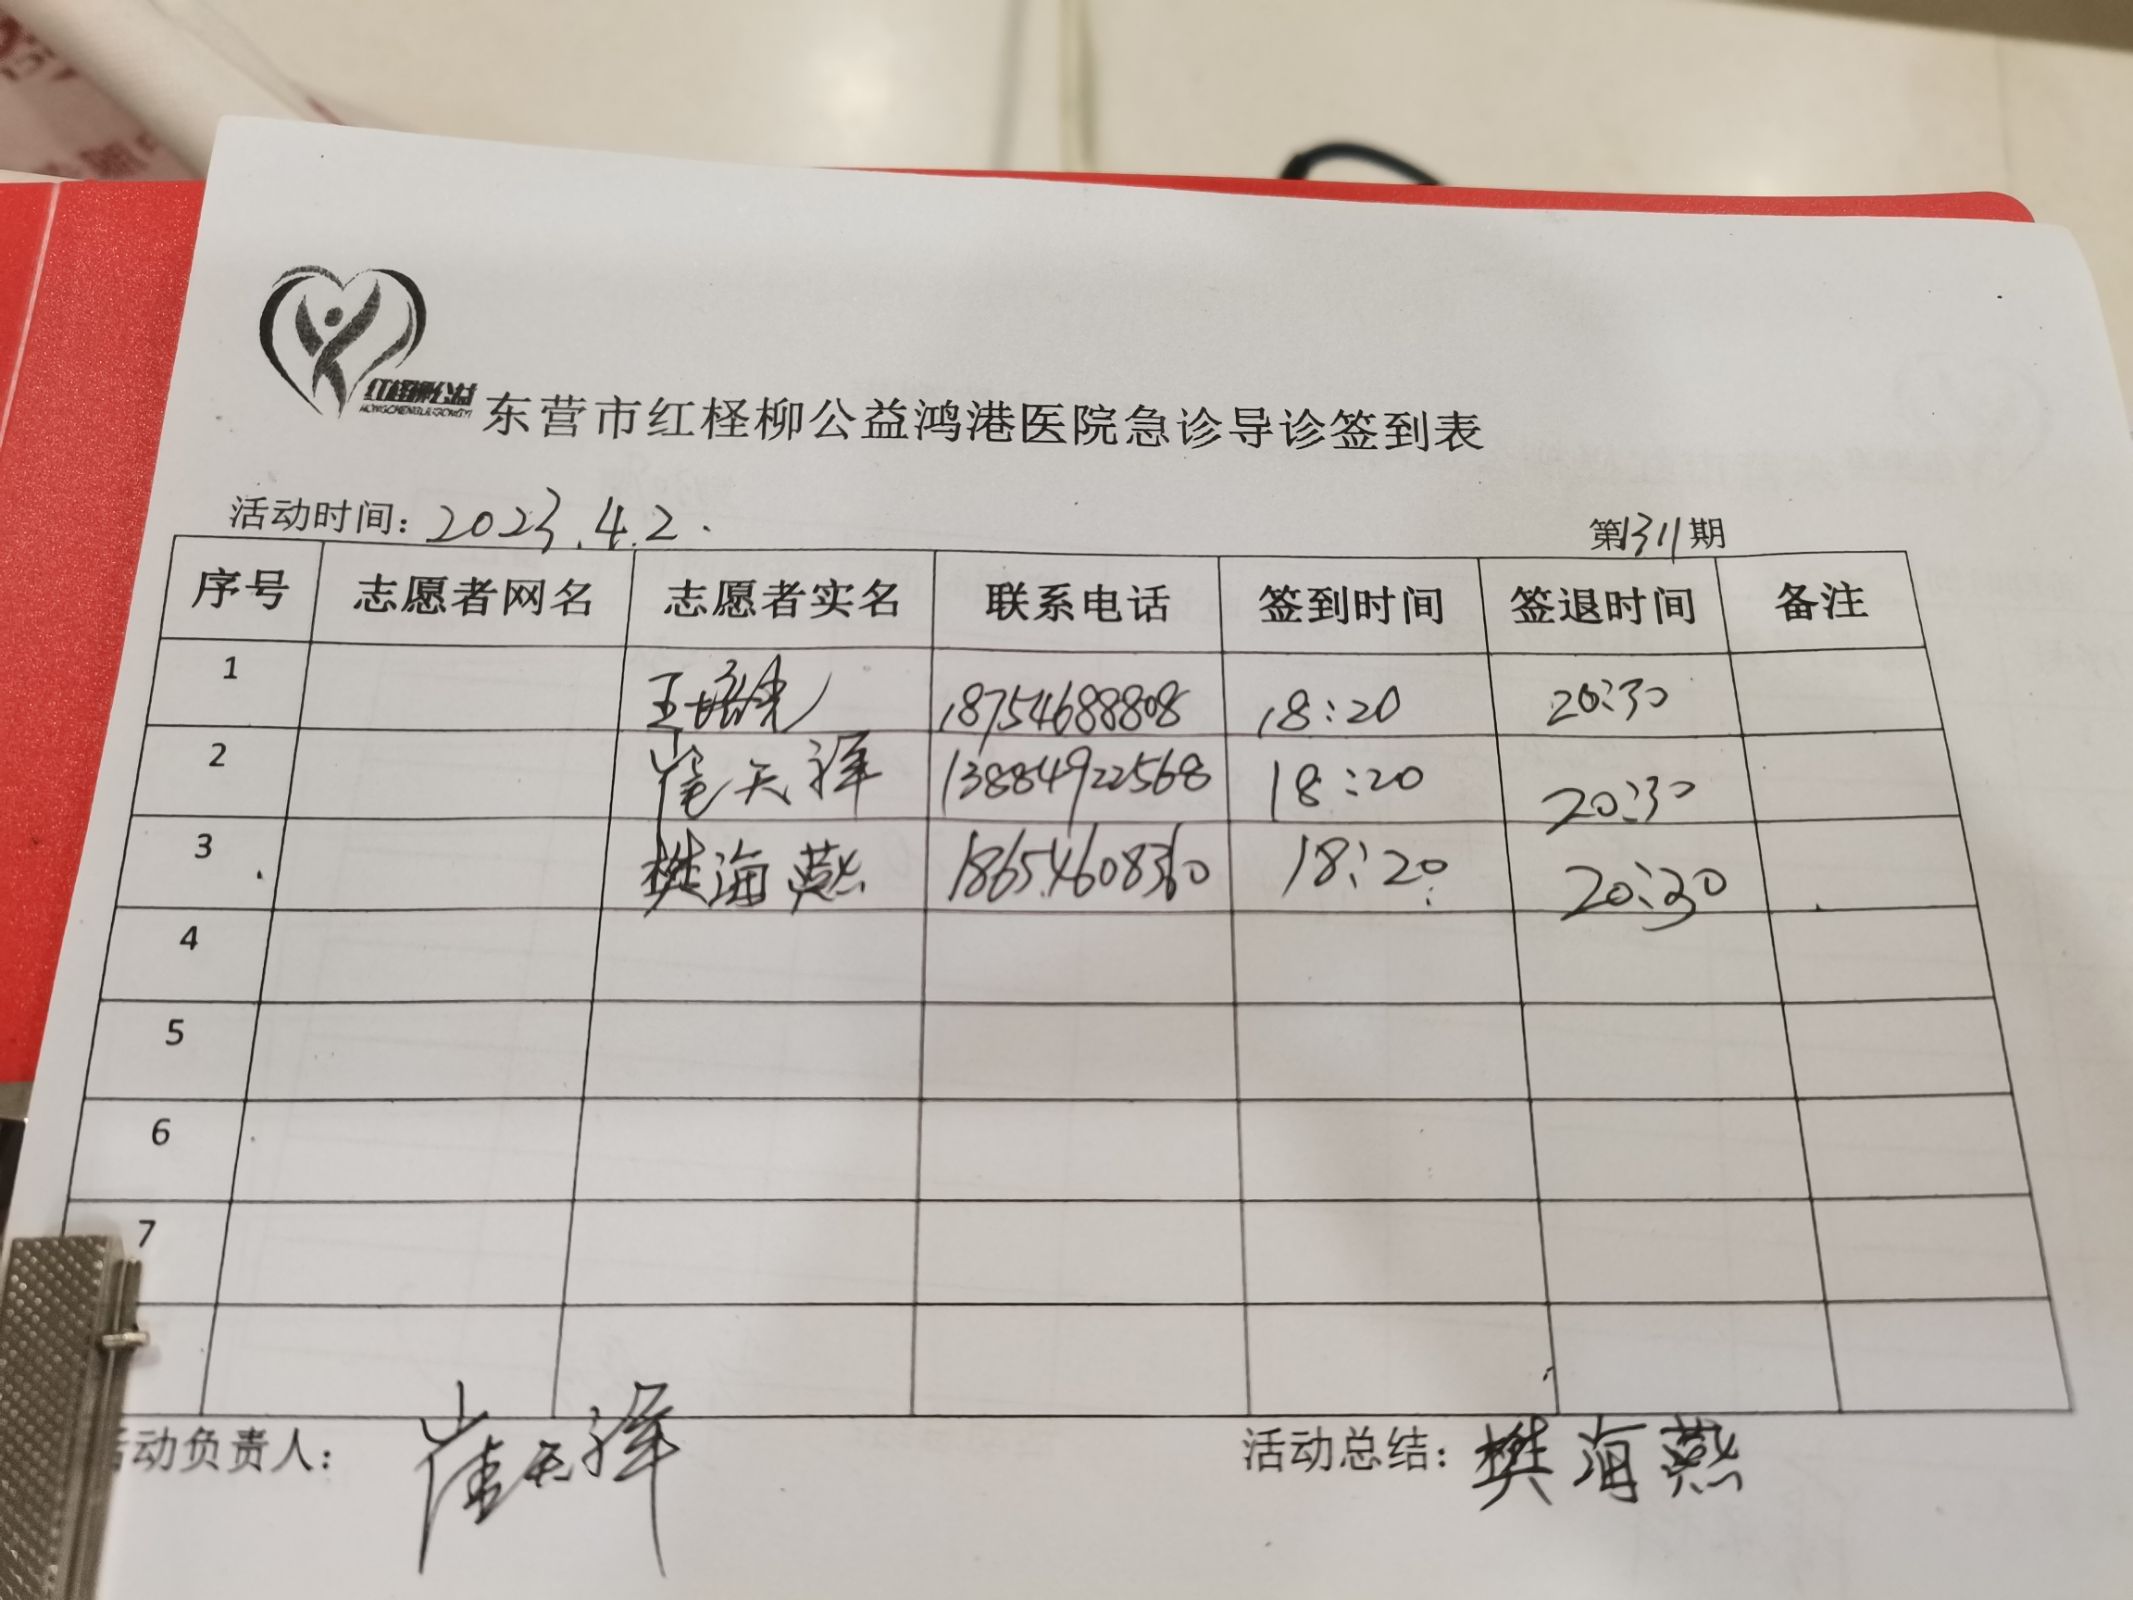 红柽柳公益
HONGCHENGLIUGONGYI
东营市红柽柳公益鸿港医院急诊导诊签到表
活动时间：2023.4.2. 第1311期
序号 志愿者网名 志愿者实名 联系电话 签到时间 签退时间 备注
1 王培光 18754688808 18:20 20:30
2 崔天泽 13884922568 18:20 20:30
3 樊海燕 18654608360 18:20 20:30
4
5
6
7
活动负责人：崔天泽 活动总结：樊海燕